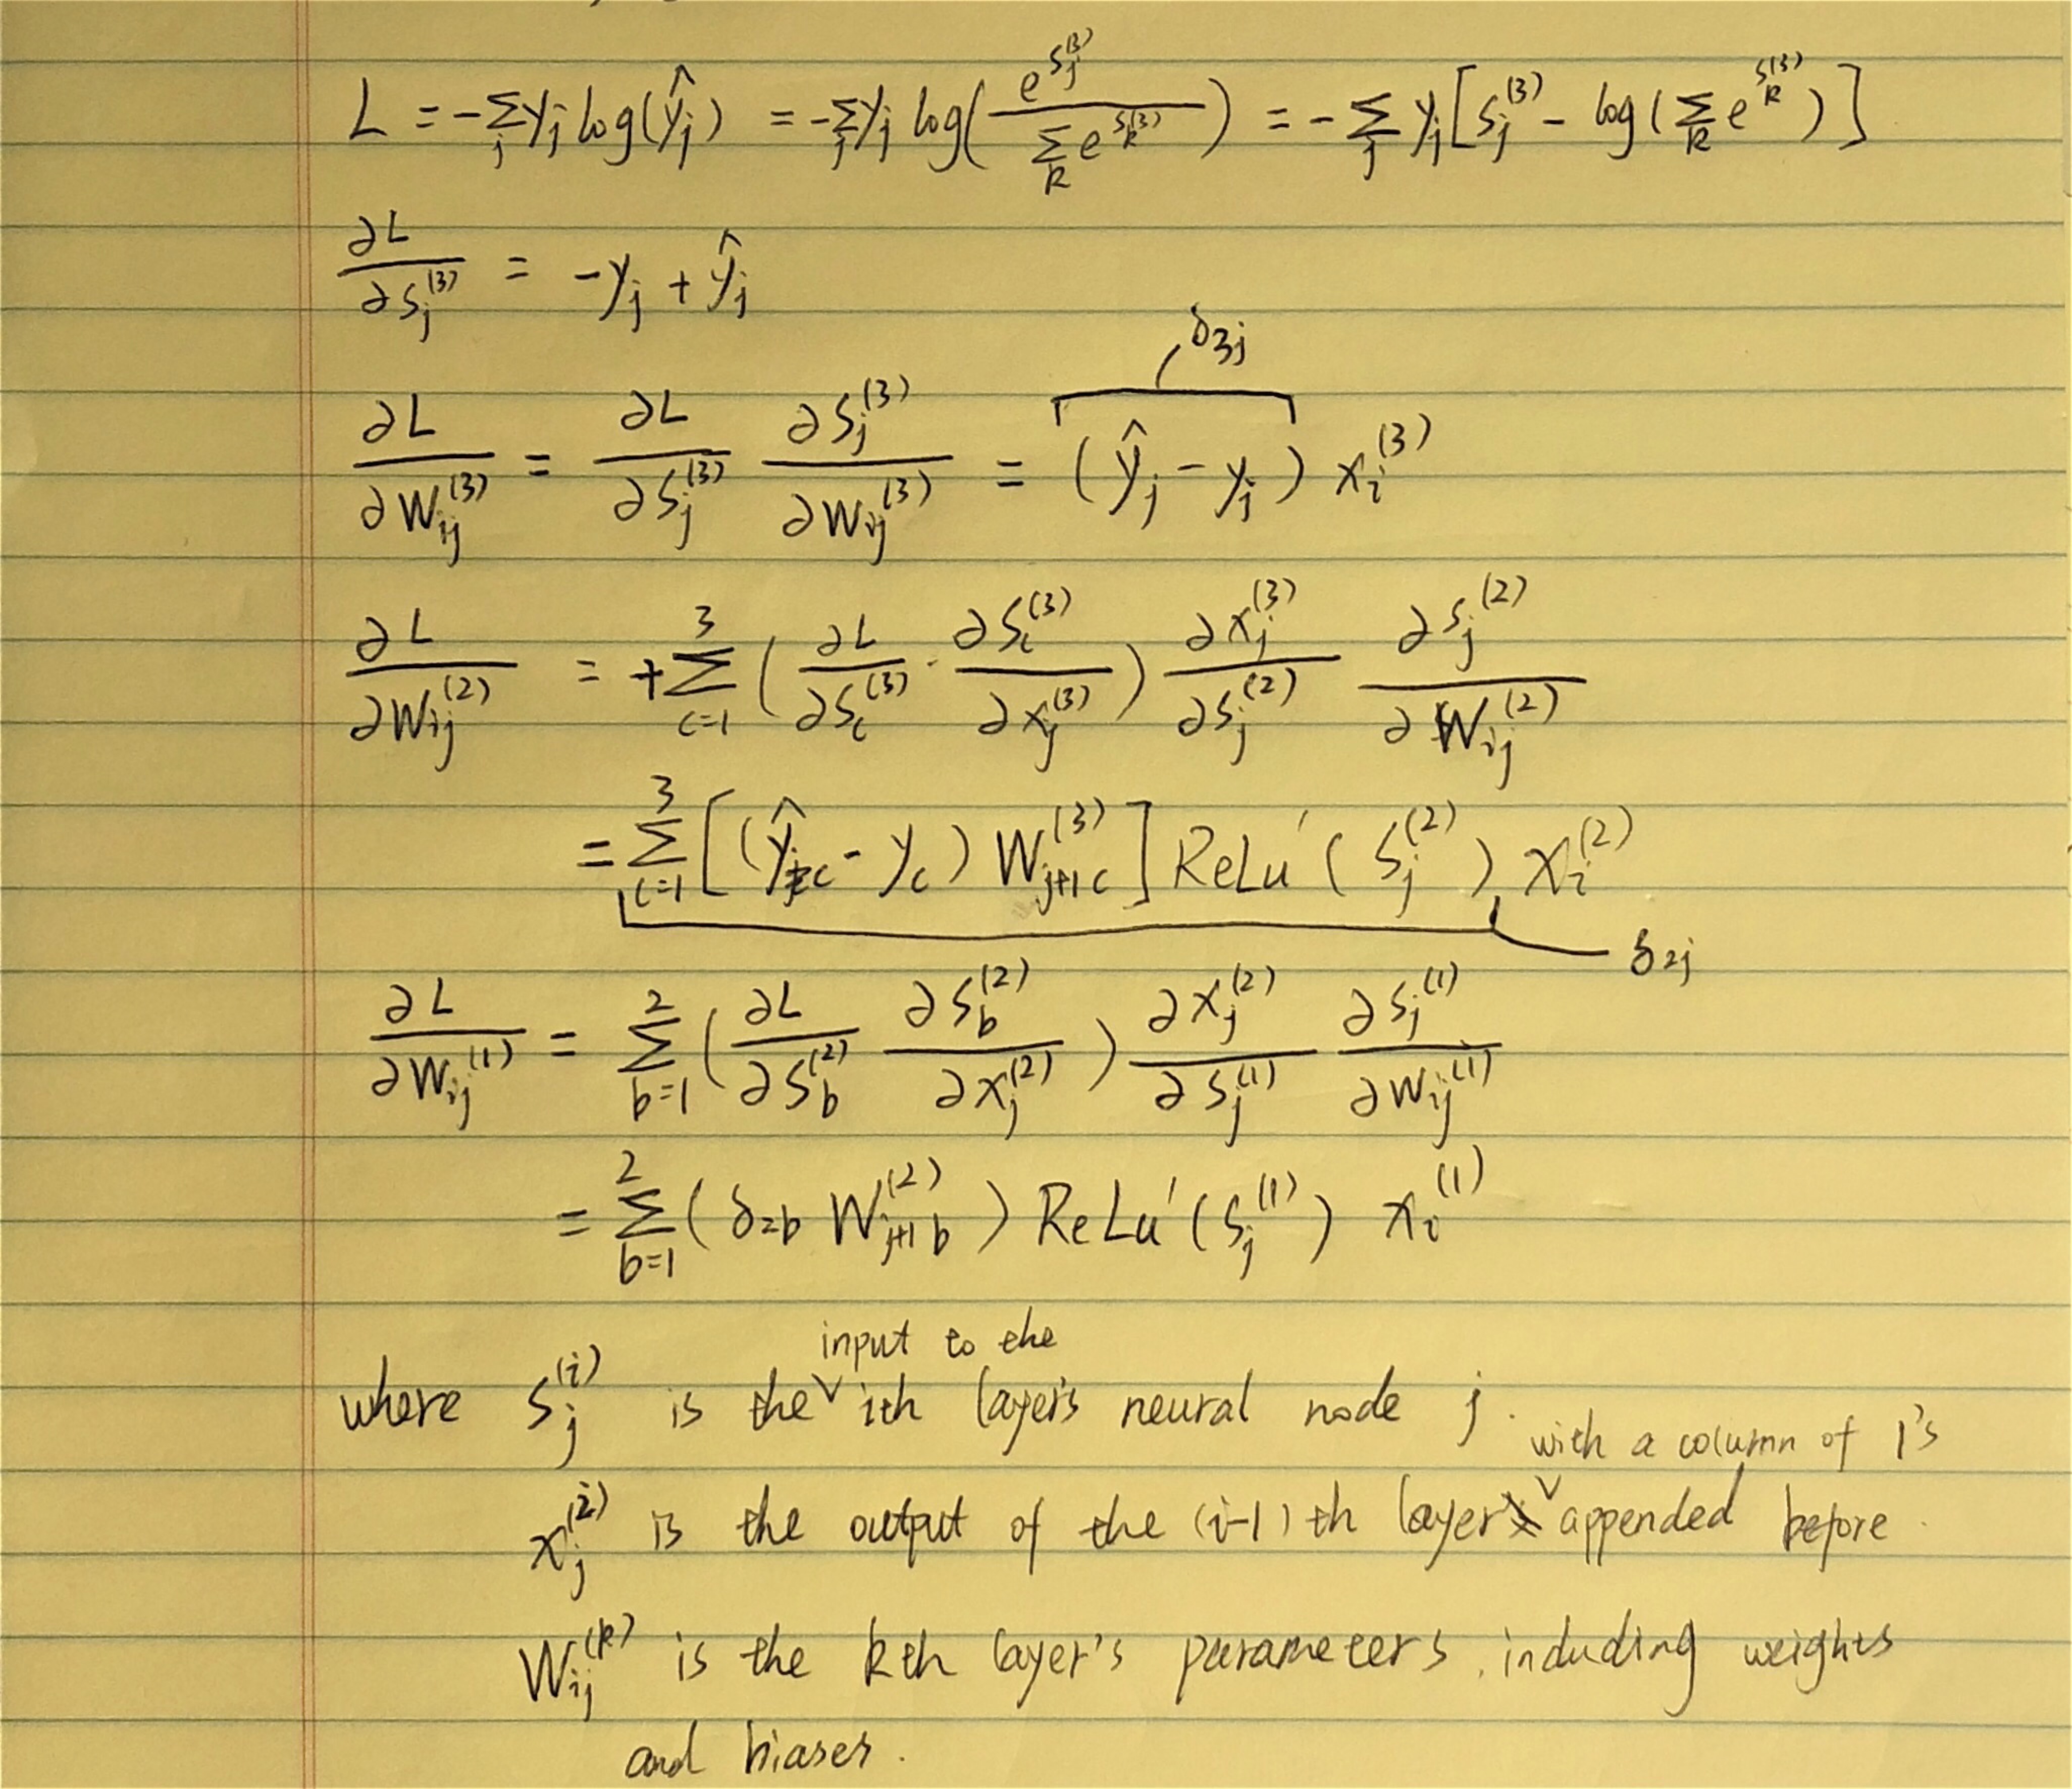 L = -∑_j y_j log(ŷ_j) = -∑_j y_j log( e^{S_j^{(3)}} / ∑_k e^{S_k^{(3)}} ) = -∑_j y_j [ S_j^{(3)} - log( ∑_k e^{S_k^{(3)}} ) ]
∂L / ∂S_j^{(3)} = -y_j + ŷ_j
δ_{3j}
∂L / ∂W_{ij}^{(3)} = ∂L / ∂S_j^{(3)} ∂S_j^{(3)} / ∂W_{ij}^{(3)} = (ŷ_j - y_j) x_i^{(3)}
∂L / ∂W_{ij}^{(2)} = +∑_{c=1}^{3} ( ∂L / ∂S_c^{(3)} · ∂S_c^{(3)} / ∂x_j^{(3)} ) ∂x_j^{(3)} / ∂S_j^{(2)} ∂S_j^{(2)} / ∂W_{ij}^{(2)}
= ∑_{c=1}^{3} [ (ŷ_c - y_c) W_{j+1 c}^{(3)} ] ReLu'( S_j^{(2)} ) x_i^{(2)}
δ_{2j}
∂L / ∂W_{ij}^{(1)} = ∑_{b=1}^{2} ( ∂L / ∂S_b^{(2)} ∂S_b^{(2)} / ∂x_j^{(2)} ) ∂x_j^{(2)} / ∂S_j^{(1)} ∂S_j^{(1)} / ∂W_{ij}^{(1)}
= ∑_{b=1}^{2} ( δ_{2b} W_{j+1 b}^{(2)} ) ReLu'( S_j^{(1)} ) x_i^{(1)}
where S_j^{(i)} is the input to the ith layer's neural node j.
x_j^{(i)} is the output of the (i-1)th layer with a column of 1's appended before.
W_{ij}^{(k)} is the kth layer's parameters, including weights
and biases.